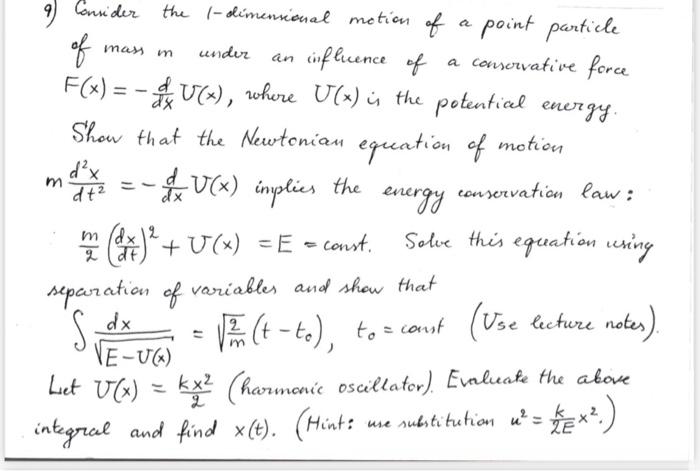 9) Consider the 1-dimensional motion of a point particle
of mass m under an influence of a conservative force
F(x) = - d/dx U(x), where U(x) is the potential energy.
Show that the Newtonian equation of motion
m d²x/dt² = - d/dx U(x) implies the energy conservation law:
m/2 (dx/dt)² + U(x) = E = const. Solve this equation using
separation of variables and show that
∫ dx/√(E-U(x)) = √(2/m) (t-t₀), t₀ = const (Use lecture notes).
Let U(x) = kx²/2 (harmonic oscillator). Evaluate the above
integral and find x(t). (Hint: use substitution u² = k/2E x².)